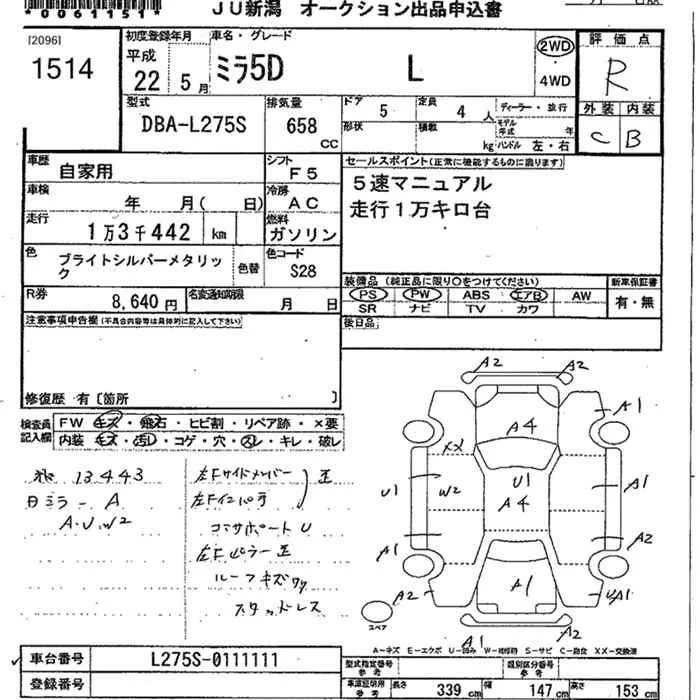 *0061151*
JU新潟 オークション出品申込書
[2096]
1514
初度登録年月
平成
22年 5月
車名・グレード
ミラ5D L
2WD
4WD
評価点
R
型式
DBA-L275S
排気量
658 CC
ドア 5
定員 4人
形状
積数 kg
ディーラー・並行
モデル年式 年
ハンドル 左・右
外装 内装
C B
車歴
自家用
シフト
F5
車検
年 月( 日)
冷房
AC
走行
1万3千442 km
燃料
ガソリン
色
ブライトシルバーメタリック
色替
色コード
S28
R券
8,640円
名変通知期限
月 日
セールスポイント(正常に機能するものに限ります)
5速マニュアル
走行1万キロ台
装備品(純正品に限り○をつけてください)
PS PW ABS エアB AW
SR ナビ TV カワ
新車保証書
有・無
後日品
注意事項申告欄(不具合内容等は具体的に記入して下さい)
修復歴 有〔箇所 〕
検査員記入欄
FW キズ・飛石・ヒビ割・リペア跡・×要
内装 キズ・汚レ・コゲ・穴・スレ・キレ・破レ
13443
ミラー A
A.U.W2
左Fサイドメンバー
左Fインパネ
コアサポート U
左Fピラー 歪
ルーフキズ
スタッドレス
歪
A2
A2
A4
A1
XX
U1
W2
U1
A4
A1
A1
A2
A2
A1
UA1
スペア
A1
A2
A-キズ E-エクボ U-凹み W-補修跡 S-サビ C-腐食 XX-交換済
車台番号
L275S-0111111
登録番号
型式指定番号
参考
類別区分番号
参考
車庫証明用
参考
長さ 339 cm
幅 147 cm
高さ 153 cm